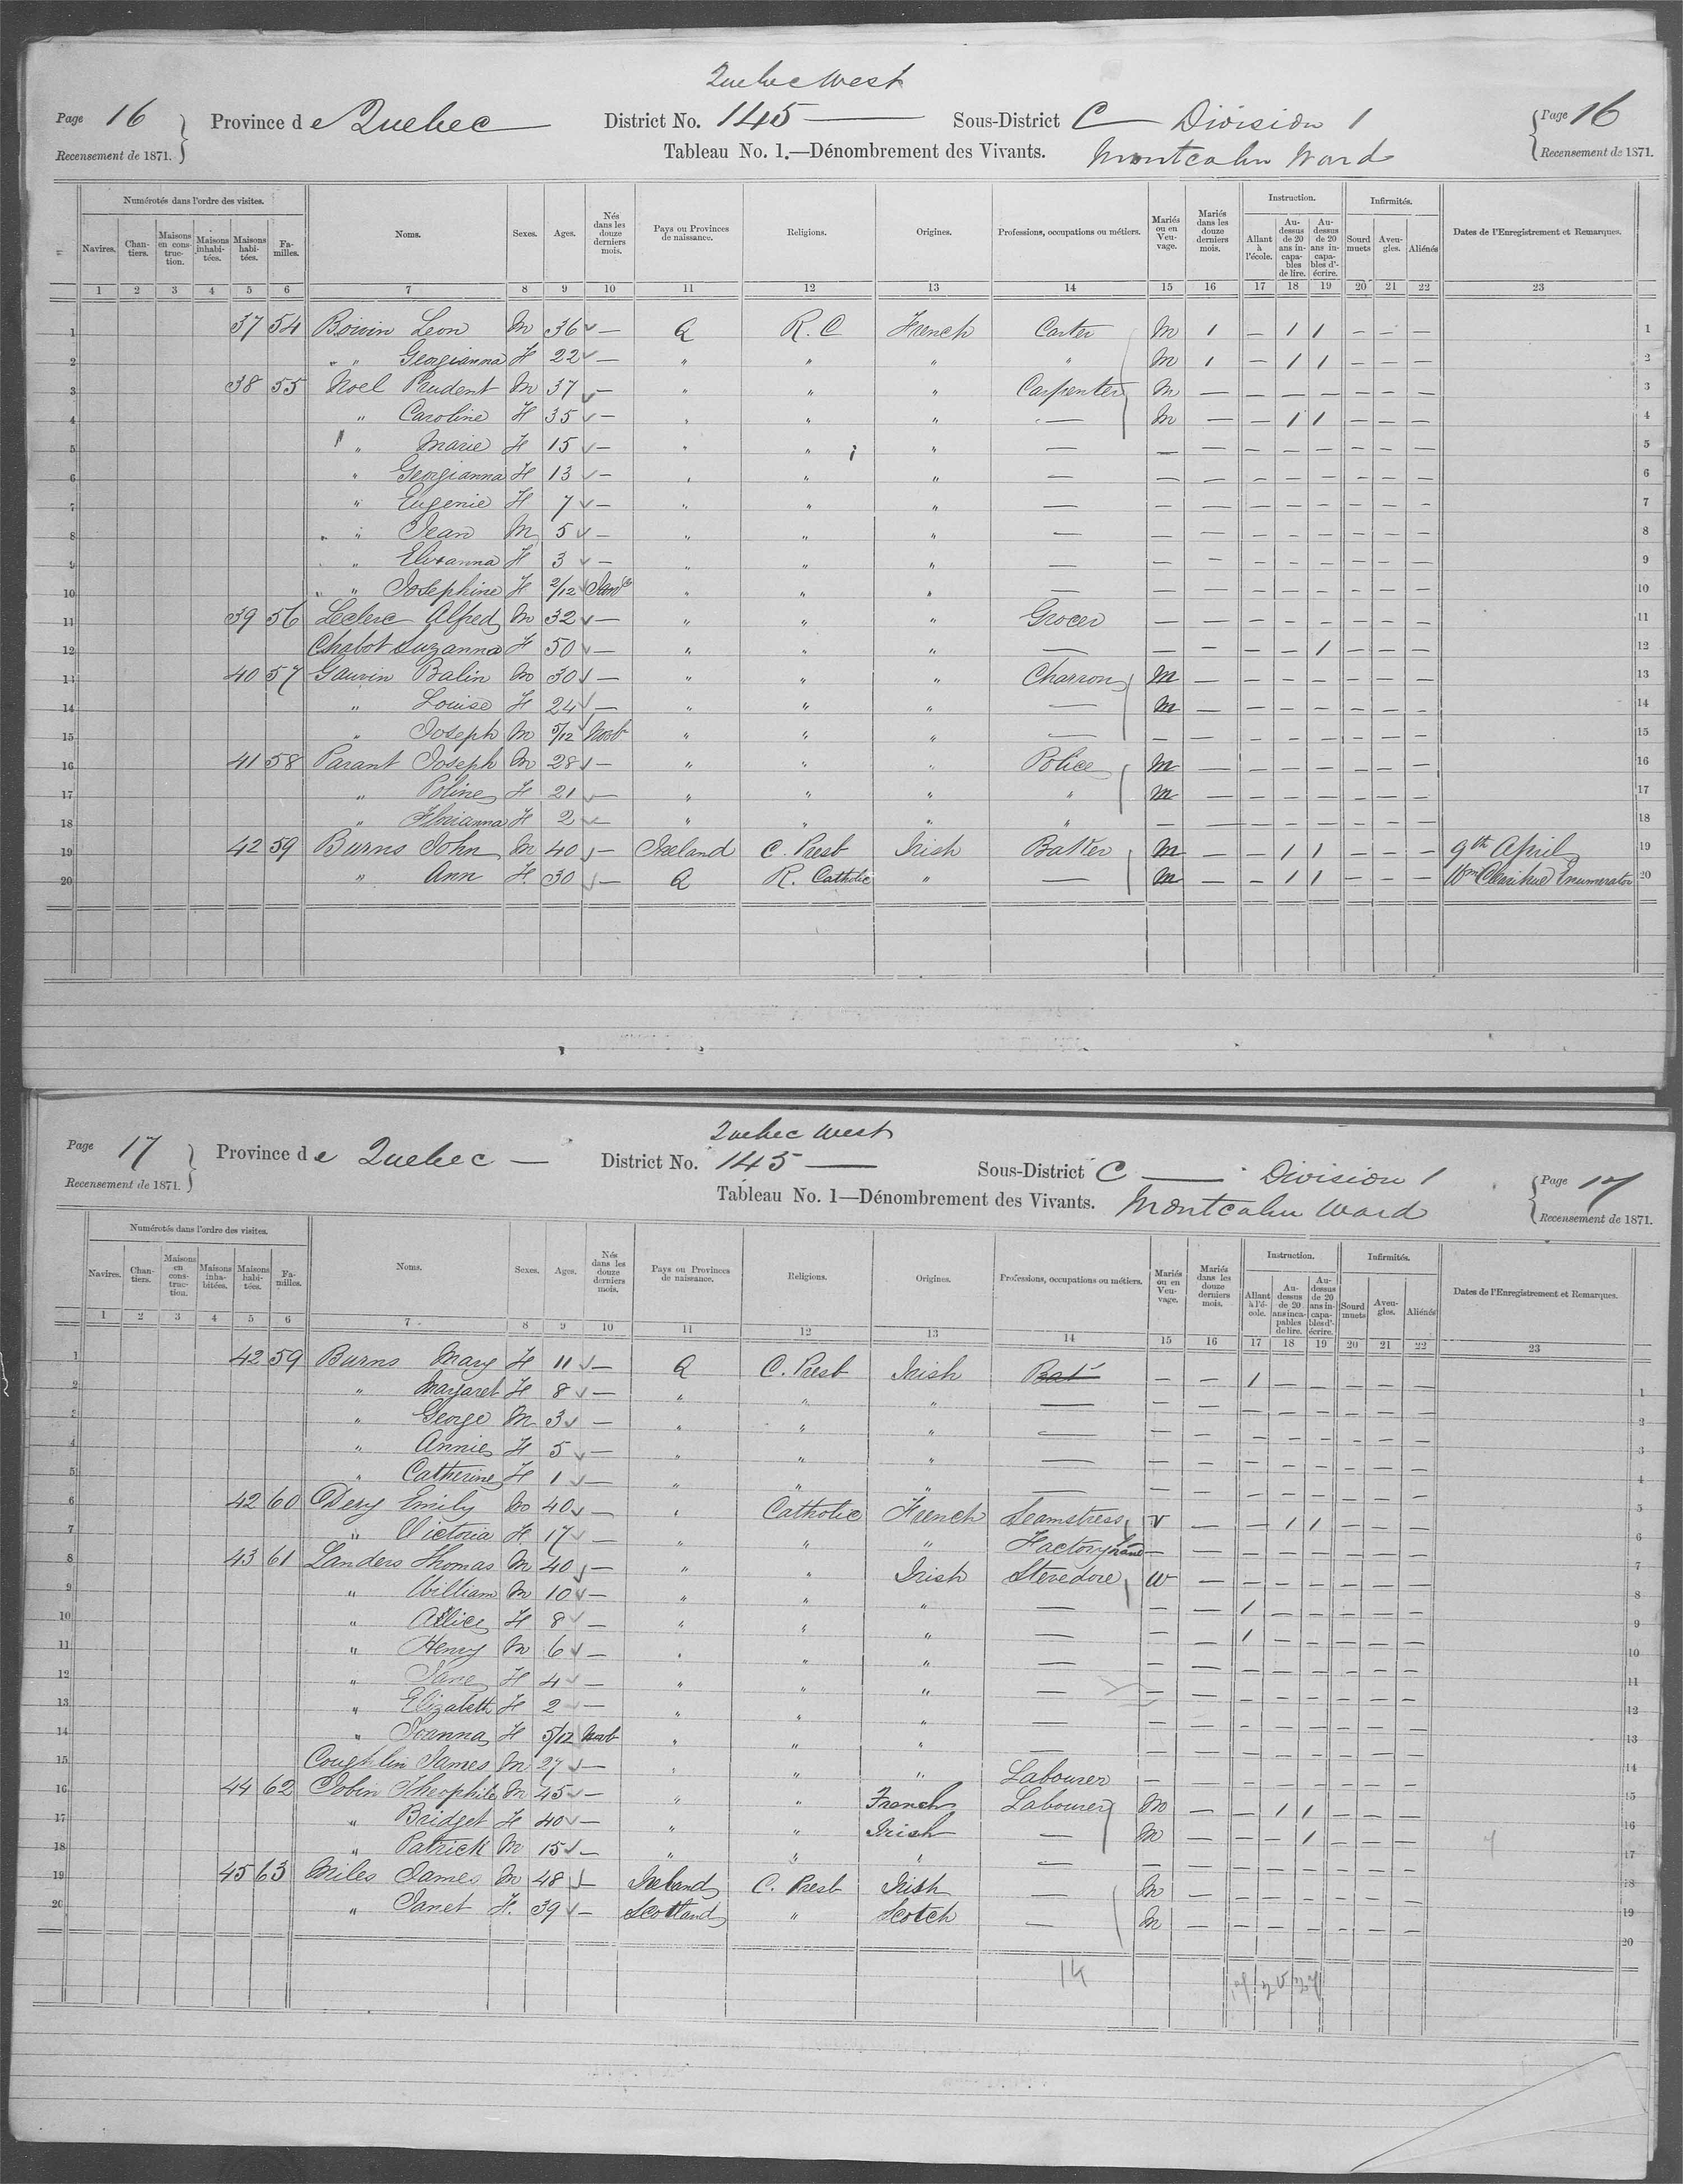 Quebec West
Page 16 Province de Quebec District No. 145 Sous-District C Division 1 Page 16
Recensement de 1871. Tableau No. 1.—Dénombrement des Vivants. Montcalm Ward Recensement de 1871.
Numérotés dans l'ordre des visites. Noms. Sexes. Ages. Nés dans les douze derniers mois. Pays ou Provinces de naissance. Religions. Origines. Professions, occupations ou métiers. Mariés ou en Veuvage. Mariés dans les douze derniers mois. Instruction. Infirmités. Dates de l'Enregistrement et Remarques.
Navires. Chantiers. Maisons en construction. Maisons inhabitées. Maisons habitées. Familles. Allant à l'école. Au-dessus de 20 ans incapables de lire. Au-dessus de 20 ans incapables d'écrire. Sourd muets Aveugles. Aliénés
1 2 3 4 5 6 7 8 9 10 11 12 13 14 15 16 17 18 19 20 21 22 23
1 37 54 Boivin Leon M 36 — Q R. C French Carter M 1 — 1 1 — — — 1
2 " Georgianna F 22 — " " " " M 1 — 1 1 — — — 2
3 38 55 Noel Prudent M 37 — " " " Carpenter M — — — — — — — 3
4 " Caroline F 35 — " " " — M — — 1 1 — — — 4
5 " Marie F 15 — " " " — — — — — — — — — 5
6 " Georgianna F 13 — " " " — — — — — — — — — 6
7 " Eugenie F 7 — " " " — — — — — — — — — 7
8 " Jean M 5 — " " " — — — — — — — — — 8
9 " Elvxanna F 3 — " " " — — — — — — — — — 9
10 " Josephine F 2/12 " " " — — — — — — — — — 10
11 39 56 Leclerc Alfred M 32 — " " " Grocer — — — — — — — — 11
12 Chabot Suzanna F 50 — " " " — — — — — 1 — — — 12
13 40 57 Gauvin Balin M 30 — " " " Charron M — — — — — — — 13
14 " Louise F 24 — " " " — M — — — — — — — 14
15 " Joseph M 5/12 Novb " " " — — — — — — — — — 15
16 41 58 Parant Joseph M 28 — " " " Police M — — — — — — — 16
17 " Poline F 21 — " " " " M — — — — — — — 17
18 " Florianna F 2 — " " " " — — — — — — — — 18
19 42 59 Burns John M 40 — Ireland C. Presb Irish Batter M — — 1 1 — — — 9th April 19
20 " Ann F 30 — Q R. Catholic " — M — — 1 1 — — — Wm Clarihue Enumerator 20
Quebec West
Page 17 Province de Quebec — District No. 145 — Sous-District C — Division 1 Page 17
Recensement de 1871. Tableau No. 1—Dénombrement des Vivants. Montcalm Ward Recensement de 1871.
Numérotés dans l'ordre des visites. Noms. Sexes. Ages. Nés dans les douze derniers mois. Pays ou Provinces de naissance. Religions. Origines. Professions, occupations ou métiers. Mariés ou en Veuvage. Mariés dans les douze derniers mois. Instruction. Infirmités. Dates de l'Enregistrement et Remarques.
Navires. Chantiers. Maisons en construction. Maisons inhabitées. Maisons habitées. Familles. Allant à l'école. Au-dessus de 20 ans incapables de lire. Au-dessus de 20 ans incapables d'écrire. Sourd muets Aveugles. Aliénés
1 2 3 4 5 6 7 8 9 10 11 12 13 14 15 16 17 18 19 20 21 22 23
1 42 59 Burns Mary F 11 — Q C. Presb Irish Bat — — 1 — — — — — 1
2 " Margaret F 8 — " " " — — — — — — — — — 2
3 " George M 3 — " " " — — — — — — — — — 3
4 " Annie F 5 — " " " — — — — — — — — — 4
5 " Catherine F 1 — " " " — — — — — — — — — 5
6 42 60 Dery Emily M 40 — " Catholic French Seamstress V — — 1 1 — — — 6
7 " Victoria F 17 — " " " Factory hand — — — — — — — — 7
8 43 61 Landers Thomas M 40 — " " Irish Stevedore W — — — — — — — 8
9 " William M 10 — " " " — — — 1 — — — — — 9
10 " Allice F 8 — " " " — — — 1 — — — — — 10
11 " Henry M 6 — " " " — — — — — — — — — 11
12 " Jane F 4 — " " " — — — — — — — — — 12
13 " Elizabeth F 2 — " " " — — — — — — — — — 13
14 " Joanna F 5/12 Novb " " " — — — — — — — — — 14
15 Coughlin James M 27 — " " " Labourer — — — — — — — — 15
16 44 62 Jobin Theophile M 45 — " " French Labourer M — — 1 1 — — — 16
17 " Bridget F 40 — " " Irish — M — — — 1 — — — 17
18 " Patrick M 15 — " " " — — — — — — — — — 18
19 45 63 Miles James M 48 — Ireland C. Presb Irish — M — — — — — — — 19
20 " Janet F. 39 — Scotland " Scotch — M — — — — — — — 20
14